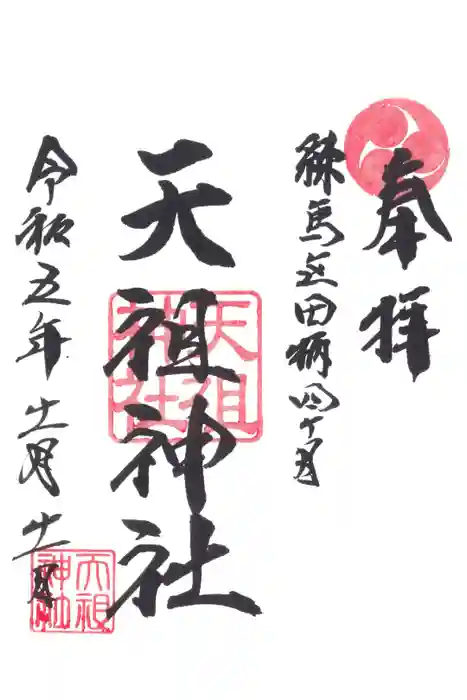 奉拝
練馬区田柄四丁目
天祖神社
天祖神社
令和五年十一月十一日
天祖神社